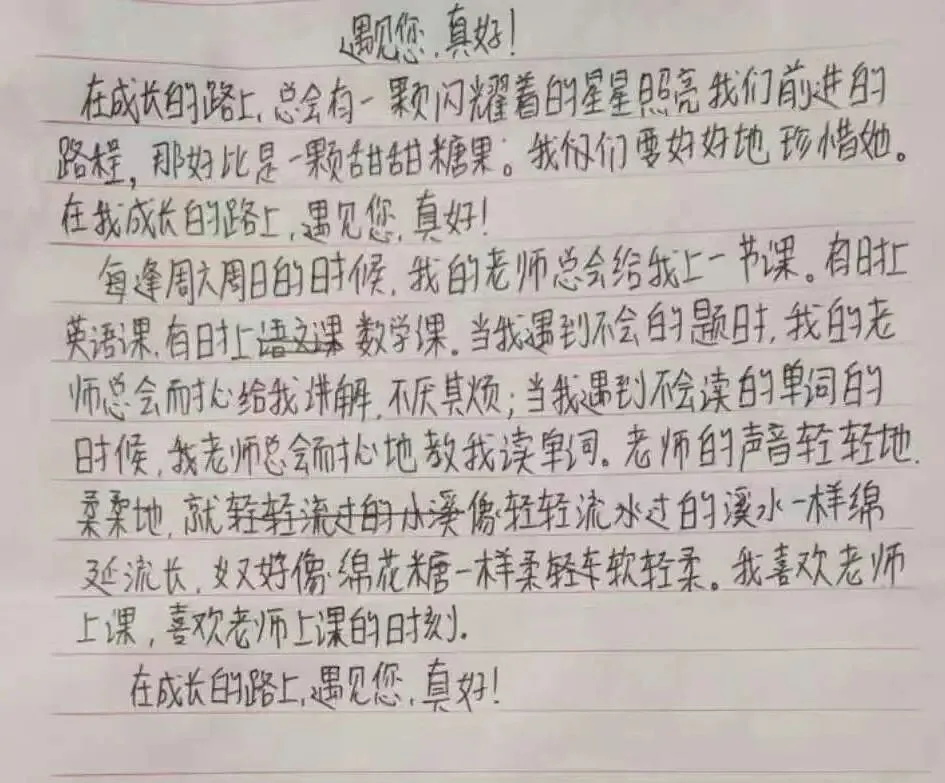 遇见您,真好!
在成长的路上,总会有一颗闪耀着的星星照亮我们前进的
路程,那好比是一颗甜甜糖果。我们要好好地珍惜她。
在我成长的路上,遇见您,真好!
每逢周六周日的时候,我的老师总会给我上一节课。有时上
英语课,有时上语文课数学课。当我遇到不会的题时,我的老
师总会耐心给我讲解,不厌其烦;当我遇到不会读的单词的
时候,我老师总会耐心地教我读单词。老师的声音轻轻地,
柔柔地,就轻轻流过的小溪像轻轻流水过的溪水一样绵
延流长,又好像绵花糖一样柔软轻柔。我喜欢老师
上课,喜欢老师上课的时刻。
在成长的路上,遇见您,真好!